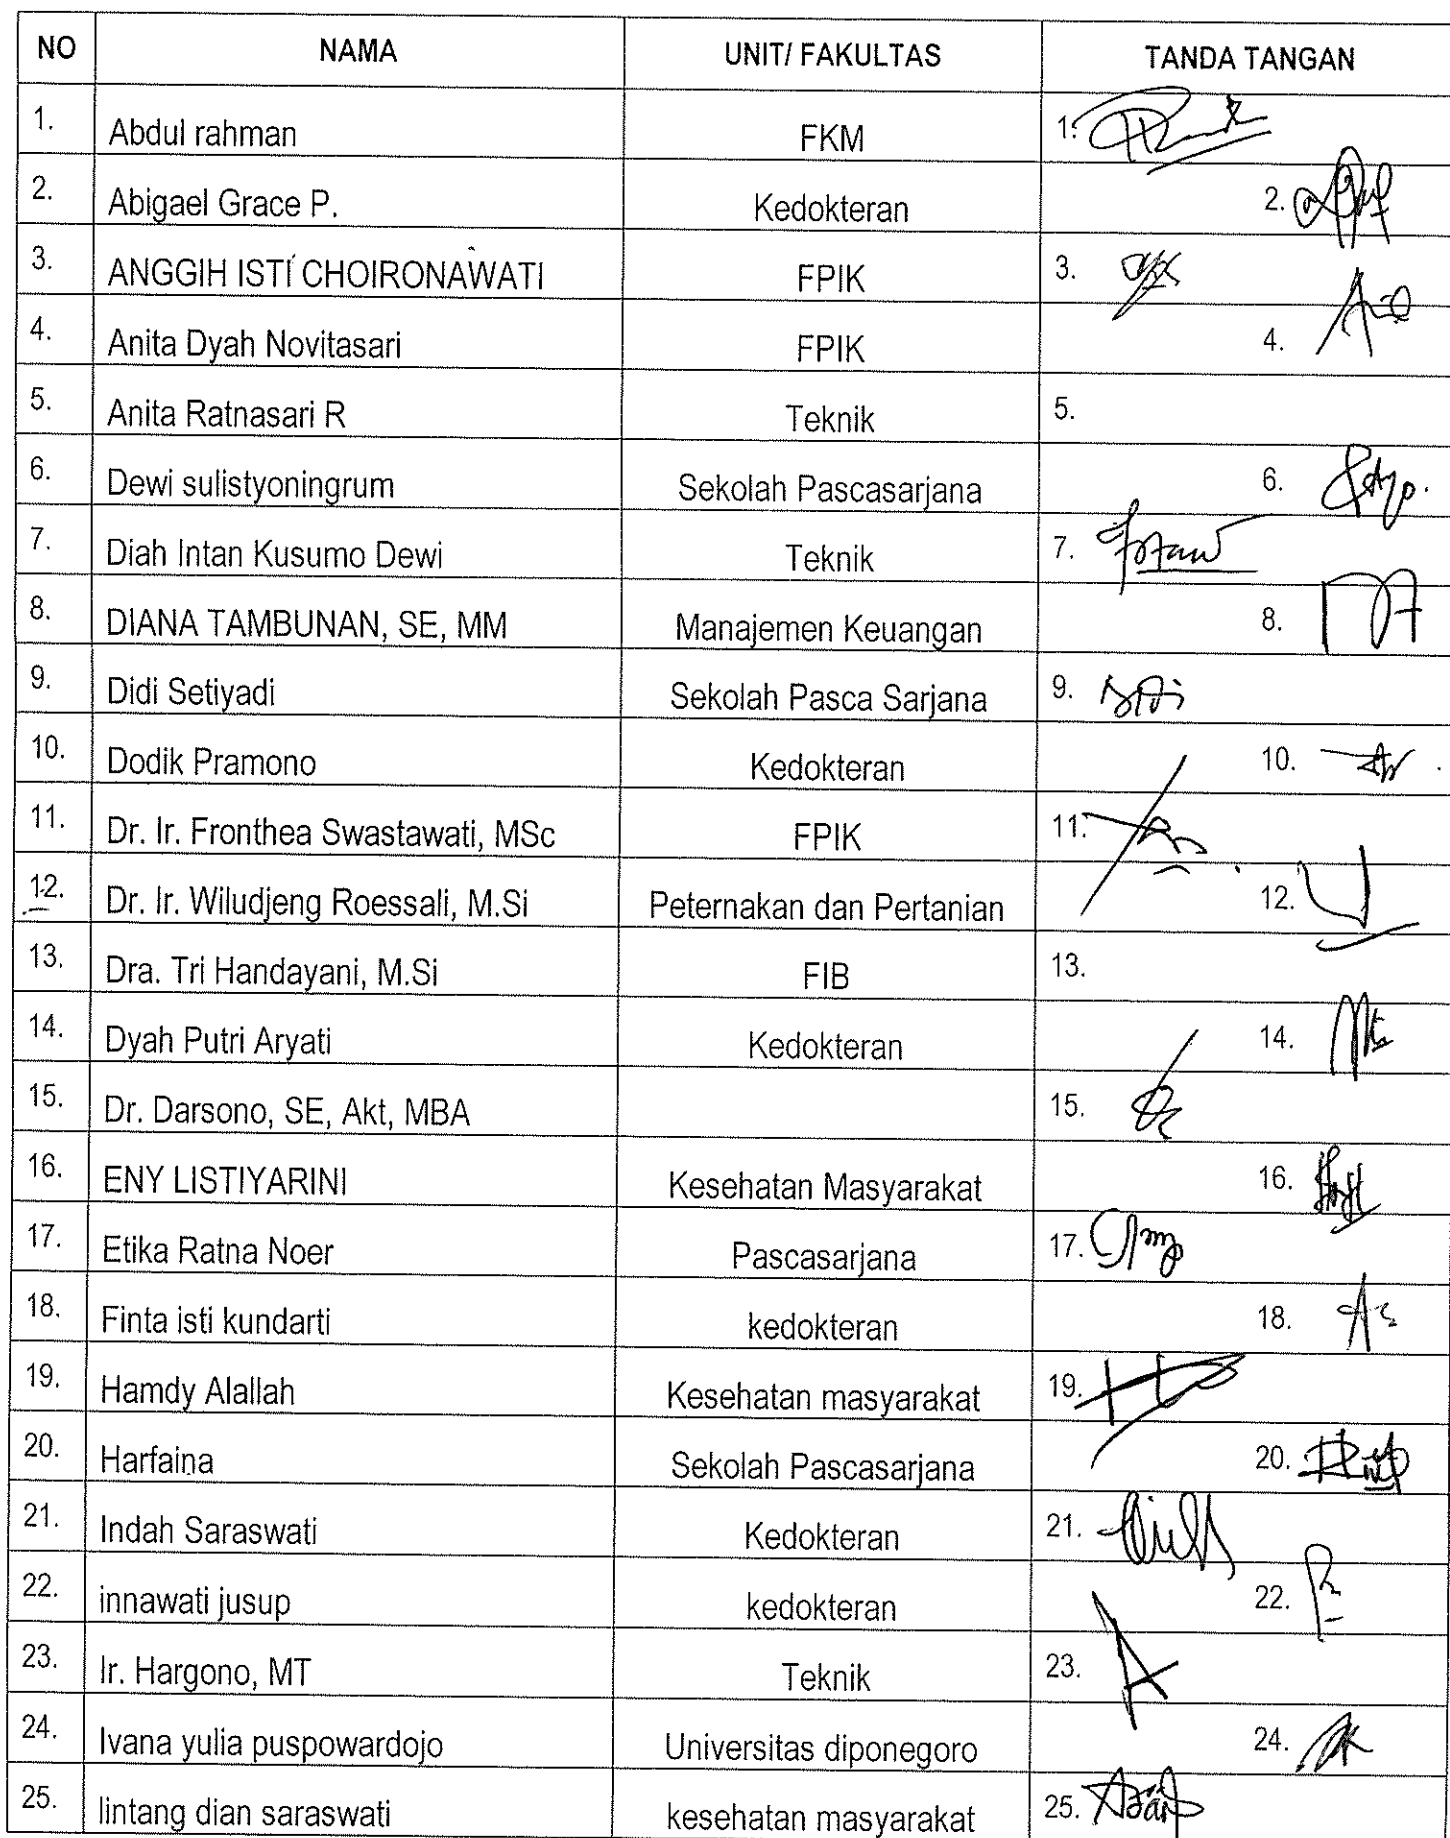 NO NAMA UNIT/ FAKULTAS TANDA TANGAN
1. Abdul rahman FKM 1.
2. Abigael Grace P. Kedokteran 2.
3. ANGGIH ISTI CHOIRONAWATI FPIK 3.
4. Anita Dyah Novitasari FPIK 4.
5. Anita Ratnasari R Teknik 5.
6. Dewi sulistyoningrum Sekolah Pascasarjana 6.
7. Diah Intan Kusumo Dewi Teknik 7.
8. DIANA TAMBUNAN, SE, MM Manajemen Keuangan 8.
9. Didi Setiyadi Sekolah Pasca Sarjana 9.
10. Dodik Pramono Kedokteran 10.
11. Dr. Ir. Fronthea Swastawati, MSc FPIK 11.
12. Dr. Ir. Wiludjeng Roessali, M.Si Peternakan dan Pertanian 12.
13. Dra. Tri Handayani, M.Si FIB 13.
14. Dyah Putri Aryati Kedokteran 14.
15. Dr. Darsono, SE, Akt, MBA 15.
16. ENY LISTIYARINI Kesehatan Masyarakat 16.
17. Etika Ratna Noer Pascasarjana 17.
18. Finta isti kundarti kedokteran 18.
19. Hamdy Alallah Kesehatan masyarakat 19.
20. Harfaina Sekolah Pascasarjana 20.
21. Indah Saraswati Kedokteran 21.
22. innawati jusup kedokteran 22.
23. Ir. Hargono, MT Teknik 23.
24. Ivana yulia puspowardojo Universitas diponegoro 24.
25. lintang dian saraswati kesehatan masyarakat 25.